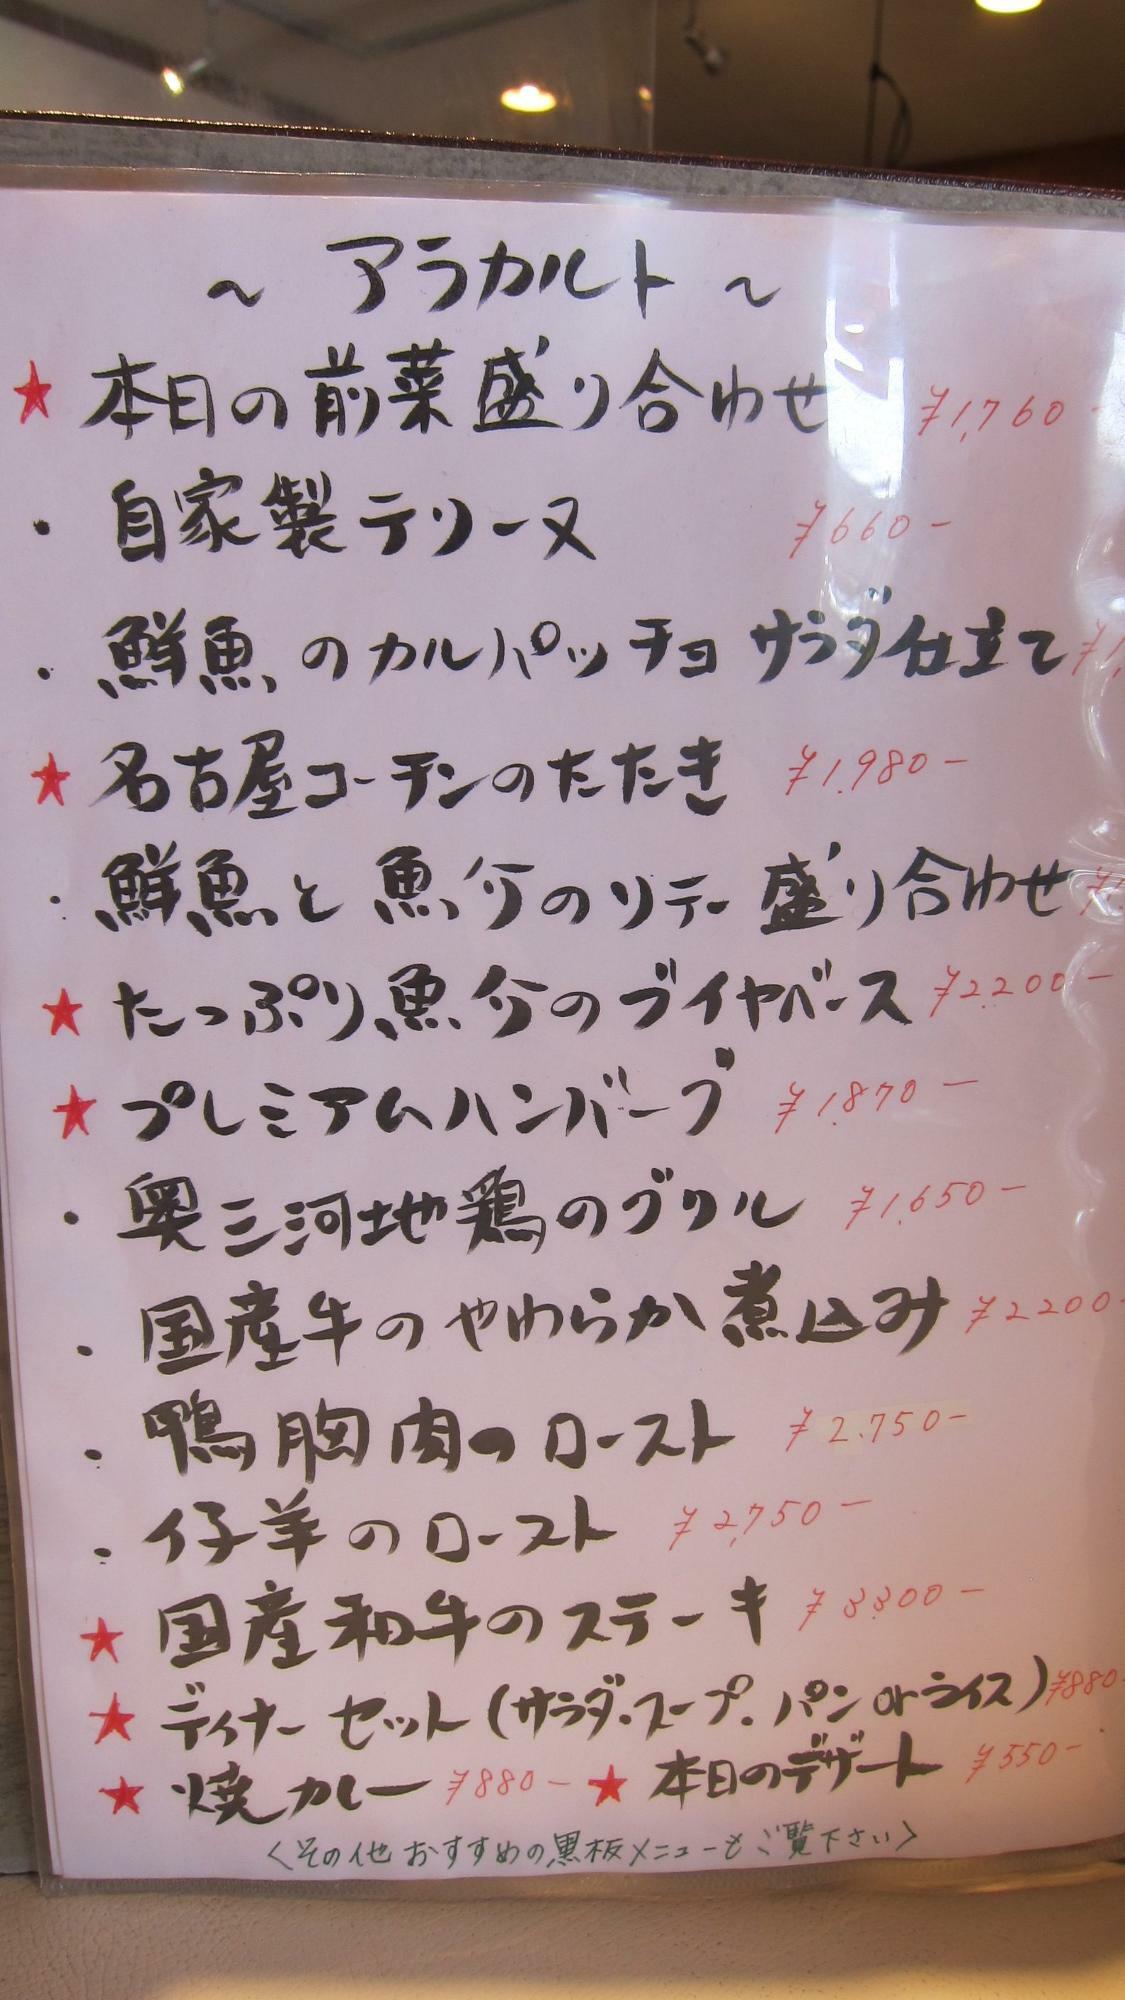 ～ アラカルト ～
★ 本日の前菜盛り合わせ ¥1,760-
・ 自家製テリーヌ ¥660-
・ 鮮魚のカルパッチョ サラダ仕立て
★ 名古屋コーチンのたたき ¥1.980-
・ 鮮魚と魚介のソテー盛り合わせ
★ たっぷり魚介のブイヤベース ¥2.200-
★ プレミアムハンバーグ ¥1.870-
・ 奥三河地鶏のグリル ¥1.650-
・ 国産牛のやわらか煮込み ¥2200-
・ 鴨胸肉のロースト ¥2.750-
・ 仔羊のロースト ¥2,750-
★ 国産和牛のステーキ ¥3.300-
★ ディナーセット(サラダ・スープ・パン or ライス) ¥880-
★ 焼カレー ¥880- ★ 本日のデザート ¥550-
〈その他おすすめの黒板メニューもご覧下さい〉